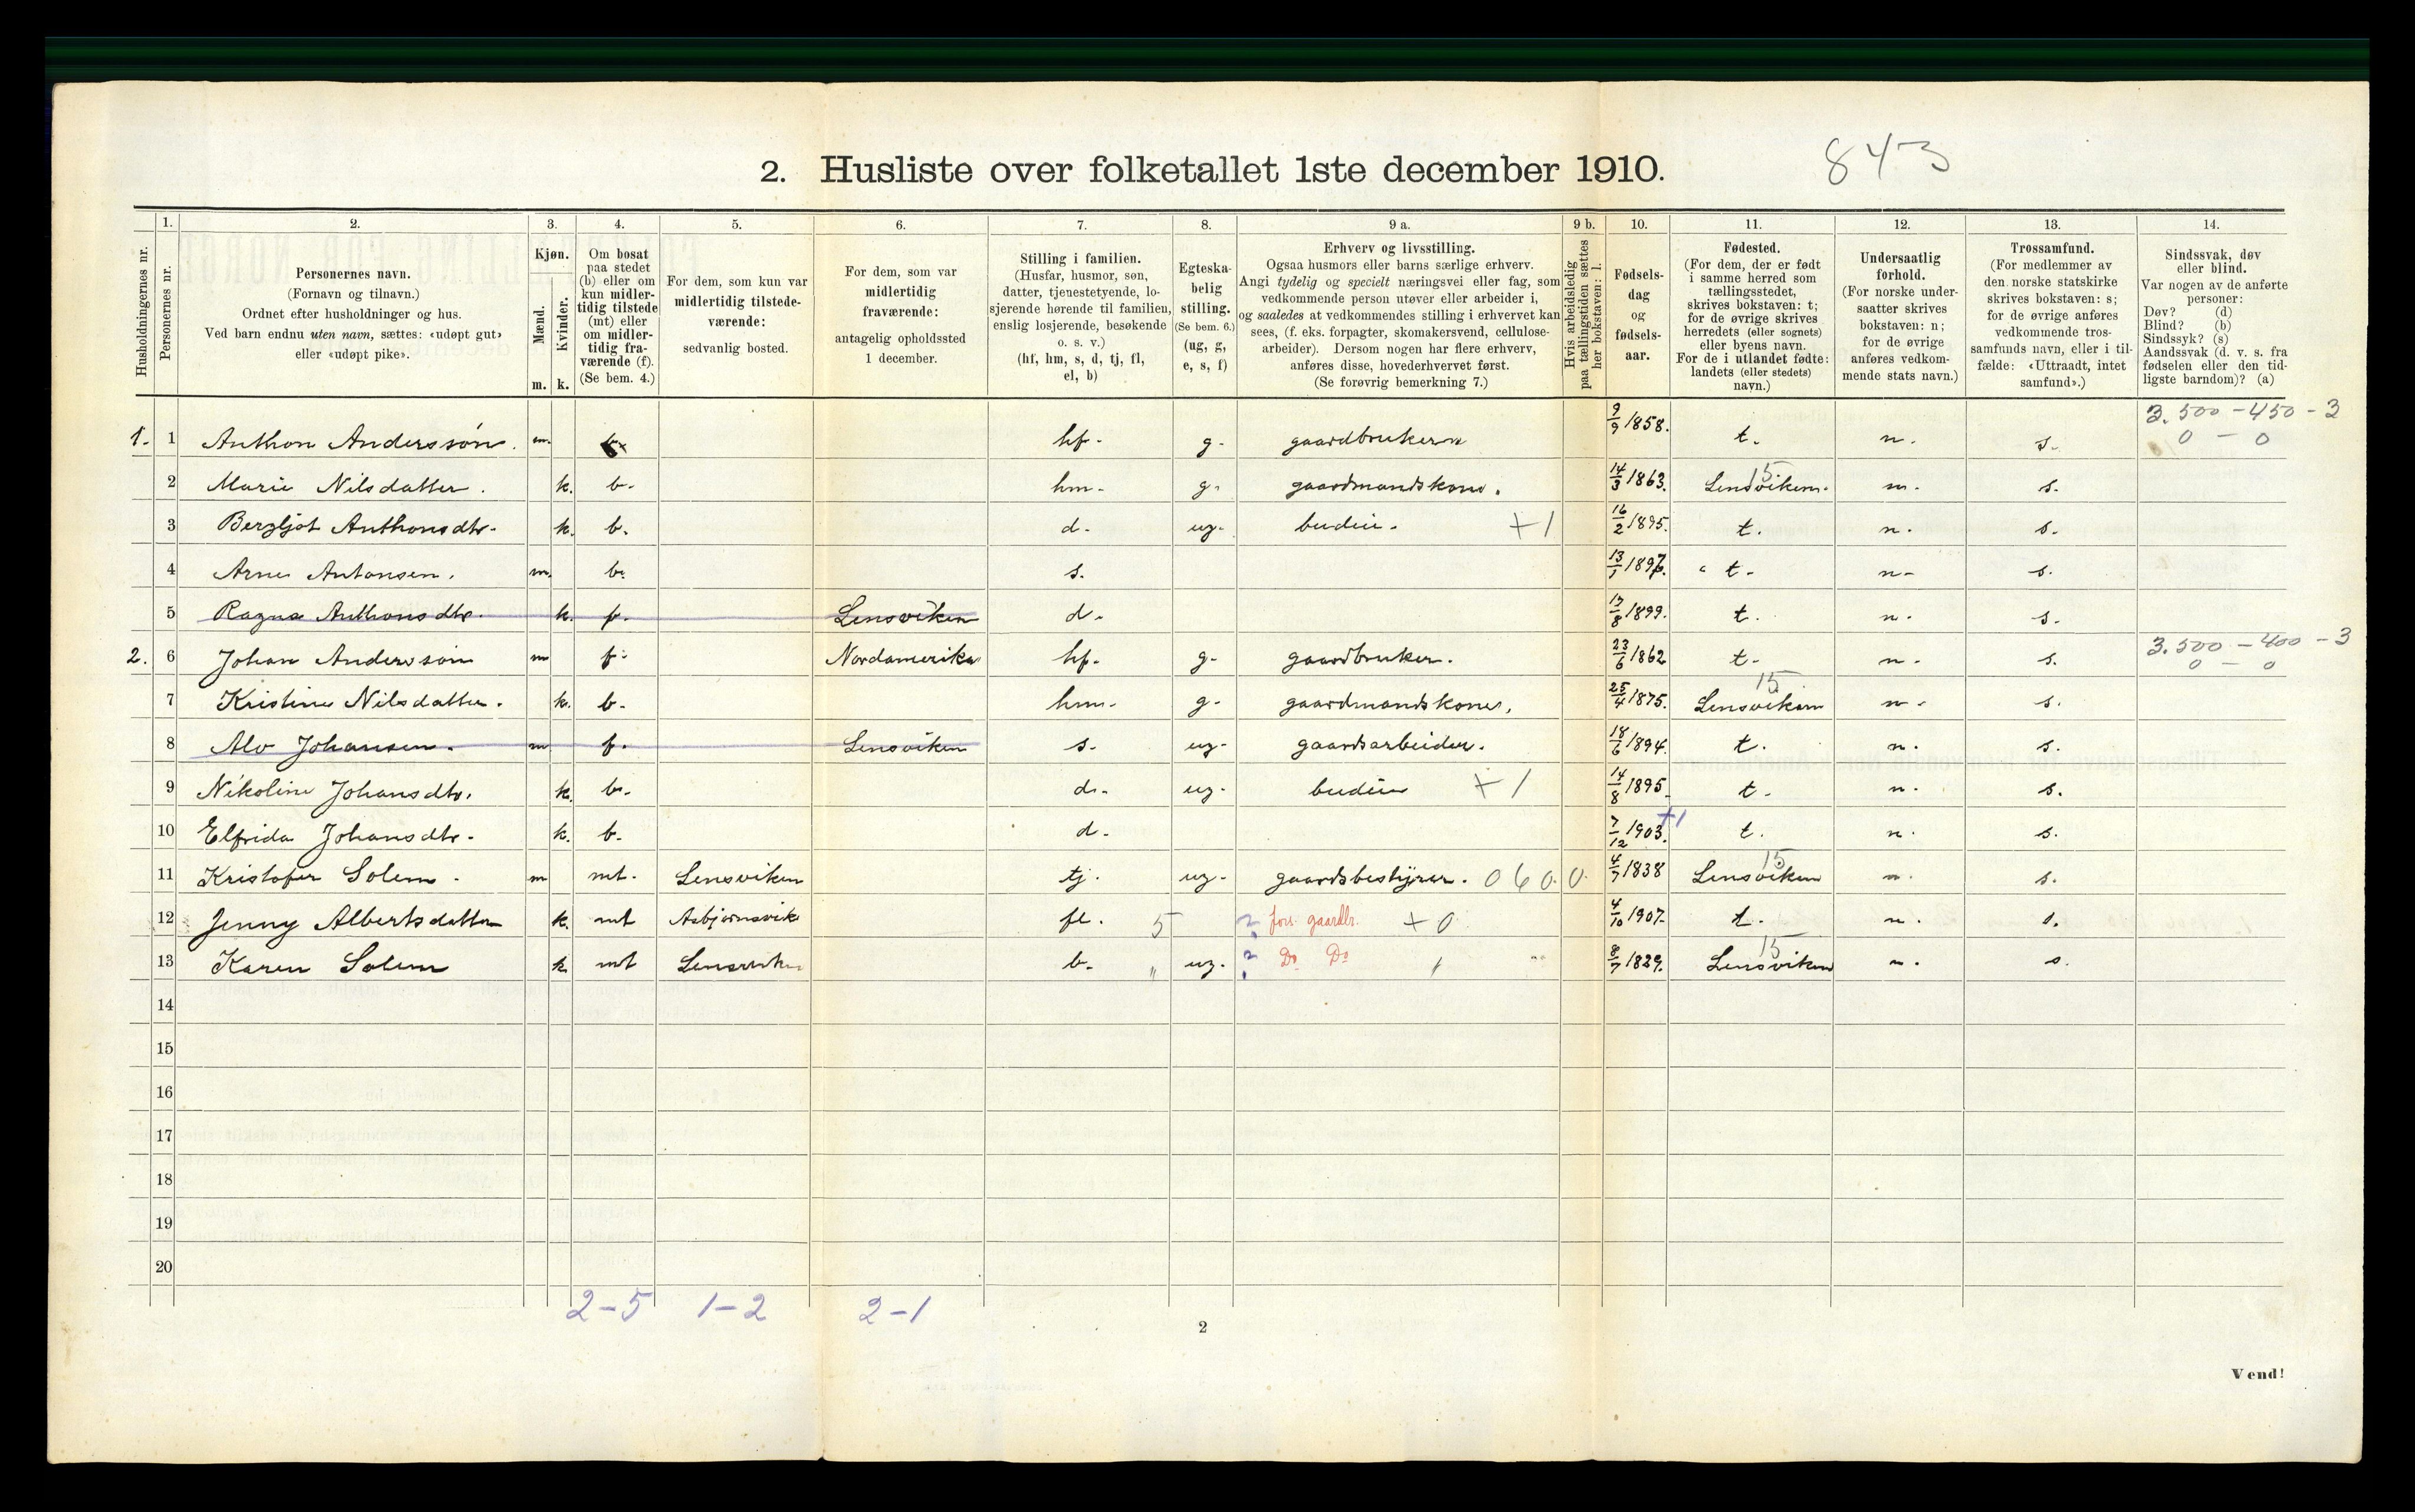 2. Husliste over folketallet 1ste december 1910.
843
1. 2. 3. 4. 5. 6. 7. 8. 9 a. 9 b. 10. 11. 12. 13. 14.
Husholdningernes nr.
Personernes nr.
Personernes navn.
(Fornavn og tilnavn.)
Ordnet efter husholdninger og hus.
Ved barn endnu uten navn, sættes: «udøpt gut»
eller «udøpt pike».
Kjøn.
Mænd.
Kvinder.
m. k.
Om bosat
paa stedet
(b) eller om
kun midler-
tidig tilstede
(mt) eller
om midler-
tidig fra-
værende (f).
(Se bem. 4.)
For dem, som kun var
midlertidig tilstede-
værende:
sedvanlig bosted.
For dem, som var
midlertidig
fraværende:
antagelig opholdssted
1 december.
Stilling i familien.
(Husfar, husmor, søn,
datter, tjenestetyende, lo-
sjerende hørende til familien,
enslig losjerende, besøkende
o. s. v.)
(hf, hm, s, d, tj, fl,
el, b)
Egteska-
belig
stilling.
(Se bem. 6.)
(ug, g,
e, s, f)
Erhverv og livsstilling.
Ogsaa husmors eller barns særlige erhverv.
Angi tydelig og specielt næringsvei eller fag, som
vedkommende person utøver eller arbeider i,
og saaledes at vedkommendes stilling i erhvervet kan
sees, (f. eks. forpagter, skomakersvend, cellulose-
arbeider). Dersom nogen har flere erhverv,
anføres disse, hovederhvervet først.
(Se forøvrig bemerkning 7.)
Hvis arbeidsledig
paa tællingstiden sættes
her bokstaven: l.
Fødsels-
dag
og
fødsels-
aar.
Fødested.
(For dem, der er født
i samme herred som
tællingsstedet,
skrives bokstaven: t;
for de øvrige skrives
herredets (eller sognets)
eller byens navn.
For de i utlandet fødte:
landets (eller stedets)
navn.)
Undersaatlig
forhold.
(For norske under-
saatter skrives
bokstaven: n;
for de øvrige
anføres vedkom-
mende stats navn.)
Trossamfund.
(For medlemmer av
den norske statskirke
skrives bokstaven: s;
for de øvrige anføres
vedkommende tros-
samfunds navn, eller i til-
fælde: «Uttraadt, intet
samfund».)
Sindssvak, døv
eller blind.
Var nogen av de anførte
personer:
Døv? (d)
Blind? (b)
Sindssyk? (s)
Aandssvak (d. v. s. fra
fødselen eller den tid-
ligste barndom)? (a)
3.500 - 450 - 3
1. 1 Anthon Anderssøn. m. b. hf- g- gaardbruker 9/9 1858. t. n. s. 0 - 0
15
2 Marie Nilsdatter. k. b. hm- g- gaardmandskone. 14/3 1863. Lensviken. n. s.
3 Bergljot Anthonsdtr. k. b. d- ug- budeie. +1 16/2 1895. t. n. s.
4 Arne Antonsen. m. b. s. 13/1 1897. t- n- s.
5 Ragna Anthonsdtr. k. f. Lensviken d- 17/8 1899. t. n. s.
3.500 - 400 - 3
2. 6 Johan Anderssøn m f. Nordamerika hf- g- gaardbruker. 23/6 1862 t- n- s. 0 - 0
15
7 Kristine Nilsdatter. k. b. hm- g- gaardmandskone. 25/4 1875. Lensviken n- s.
8 Alv Johansen. m f. Lensviken s- ug- gaardsarbeider. 18/6 1894. t. n. s.
9 Nikoline Johansdtr. k. b. d- ug- budeie +1 14/8 1895. t- n. s.
+1
10 Elfrida Johansdtr. k. b. d- 7/12 1903. t. n. s.
15
11 Kristofer Solem. m mt. Lensviken tj. ug- gaardsbestyrer. 060. 0 4/7 1838 Lensviken n. s.
12 Jenny Albertsdatter k. mt Asbjørnsvik fl. 5 2 fors. gaardbr. +0 4/10 1907. t. n. s.
15
13 Karen Solem k. mt Lensviken b. " ug. 2 Do Do 8/7 1829. Lensviken n. s.
14
15
16
17
18
19
20
2-5 1-2 2-1
2
Vend!